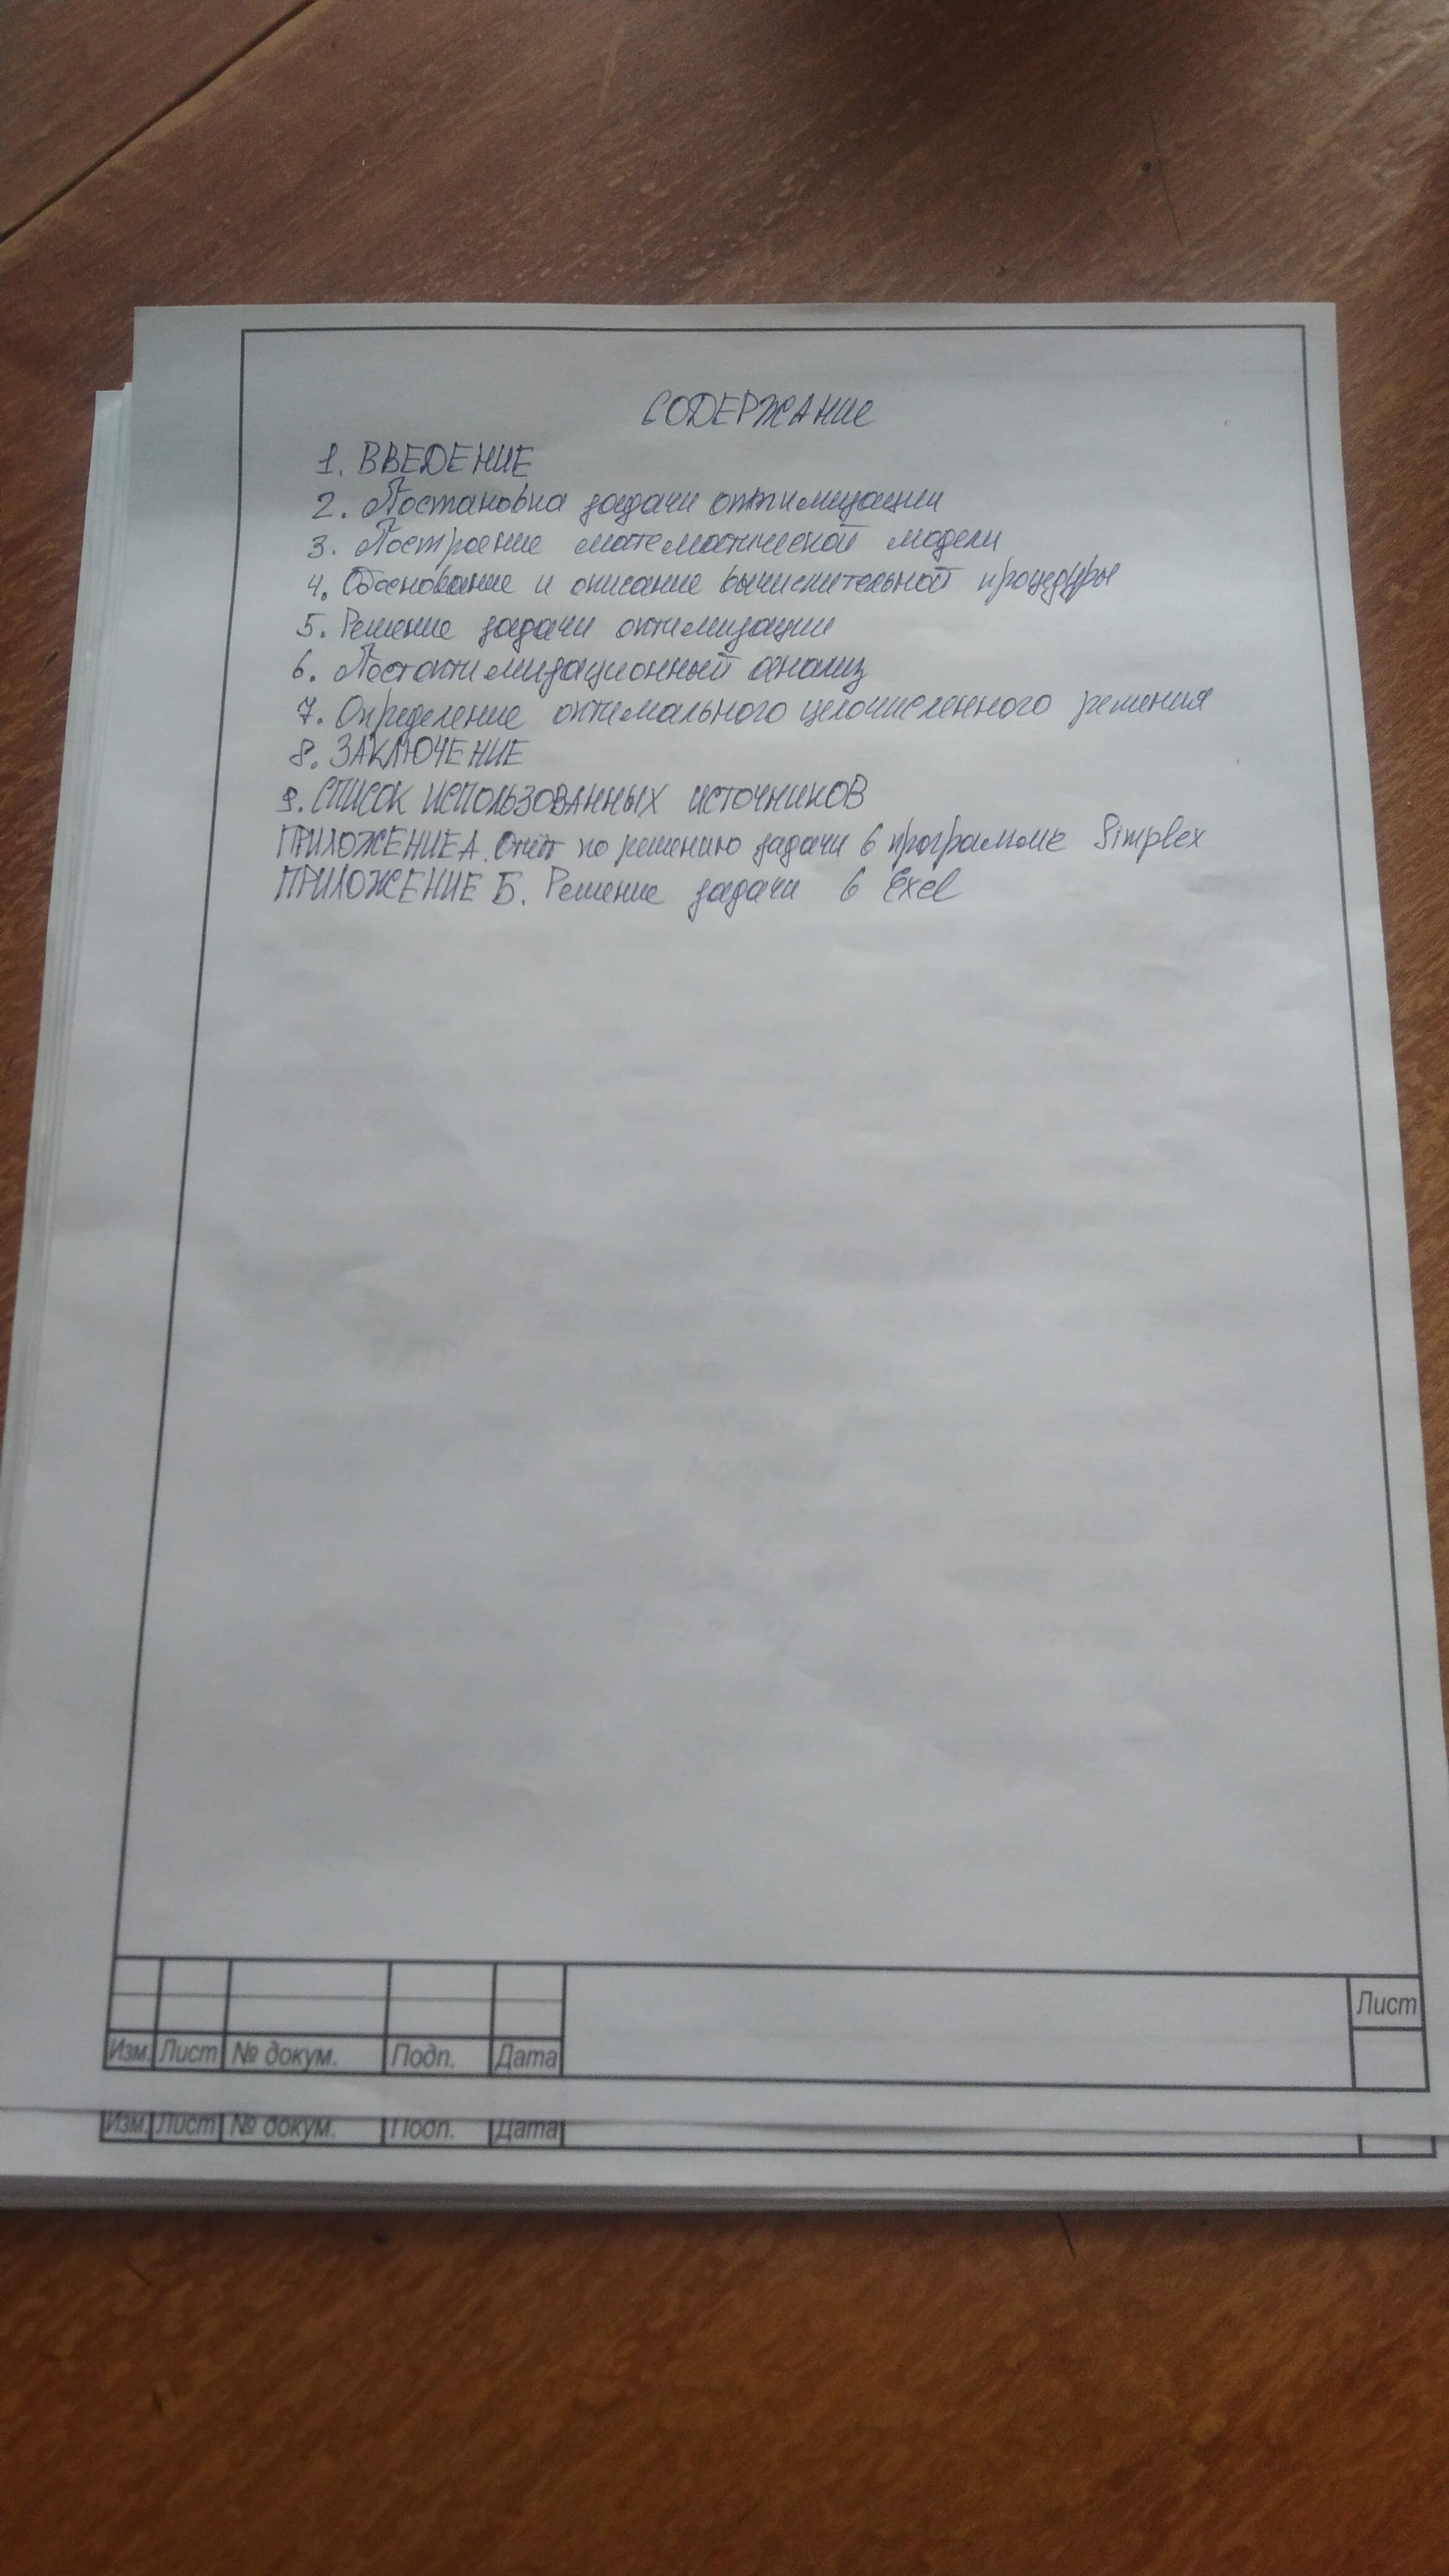 СОДЕРЖАНИЕ
1. ВВЕДЕНИЕ
2. Постановка задачи оптимизации
3. Построение математической модели
4. Обоснование и описание вычислительной процедуры
5. Решение задачи оптимизации
6. Постоптимизационный анализ
7. Определение оптимального целочисленного решения
8. ЗАКЛЮЧЕНИЕ
9. СПИСОК ИСПОЛЬЗОВАННЫХ ИСТОЧНИКОВ
ПРИЛОЖЕНИЕ А. Отчёт по решению задачи в программе Simplex
ПРИЛОЖЕНИЕ Б. Решение задачи в Exel
Лист
Изм. Лист № докум. Подп. Дата
Изм. Лист № докум. Подп. Дата